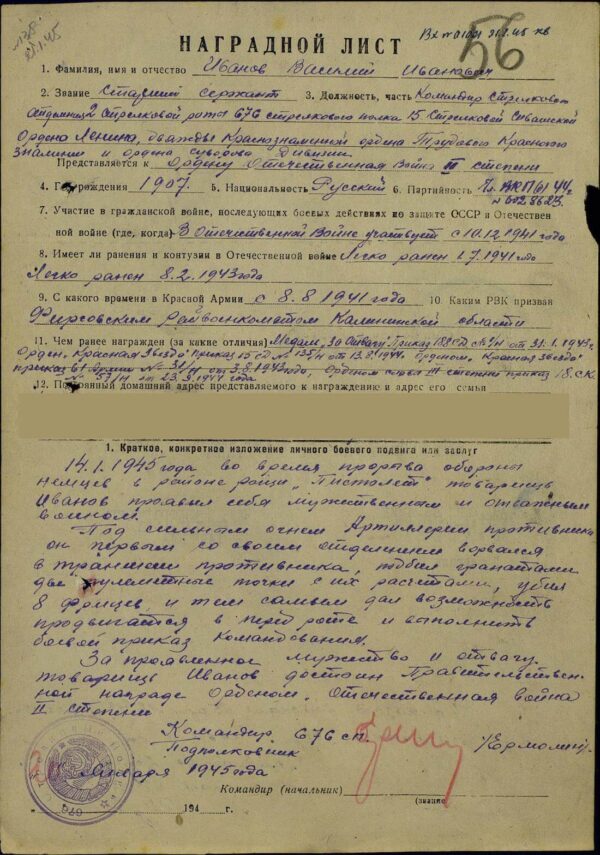 138
21.1.45
Вх № 0101 21.1.45
56
НАГРАДНОЙ ЛИСТ
1. Фамилия, имя и отчество Иванов Василий Иванович
2. Звание Старший сержант 3. Должность, часть Командир стрелкового
отделения 2 стрелковой роты 676 стрелкового полка 15 Стрелковой Сивашской
Ордена Ленина, дважды Краснознаменной ордена Трудового Красного
знамени и ордена Суворова дивизии.
Представляется к Ордену Отечественная Война II степени
4. Год рождения 1907. 5. Национальность Русский 6. Партийность Чл. ВКП(б) 44г.
№ 6028623.
7. Участие в гражданской войне, последующих боевых действиях по защите СССР и Отечествен
ной войне (где, когда) В Отечественной Войне участвует с 10.12.1941 года
8. Имеет ли ранения и контузии в Отечественной войне Легко ранен 1941 году
Легко ранен 8.2.1943 года
9. С какого времени в Красной Армии с 8.8 1941 года 10. Каким РВК призван
Фировским Райвоенкоматом Калининской области
11. Чем ранее награжден (за какие отличия) Медаль „За Отвагу" Приказ СД от 31.1.1943г.
Орден „Красная Звезда" приказ 15 сд № 135/н от 13.8.1944г. Орденом „Красная Звезда"
приказ Армии № 31/н от 3.8.1943 года, Орденом слава III степени приказ 18.СК
№ 57/н от 23.9.1944 года
12. Постоянный домашний адрес представляемого к награждению и адрес его семьи
1. Краткое, конкретное изложение личного боевого подвига или заслуг
14.1.1945 года во время прорыва обороны
немцев в районе рощи „Пистолет" товарищ
Иванов проявил себя мужественным и отважным
воином.
Под сильным огнем Артиллерии противника
он первым со своим отделением ворвался
в траншеи противника, подбил гранатами
две пулеметные точки с их расчетами, убил
8 фрицев и тем самым дал возможность
продвигатся в перед роте и выполнить
боевой приказ Командования.
За проявленное мужество и отвагу
товарищ Иванов достоин Правительствен-
ной награде Орденом „Отечественная война
II степени
Командир 676 сп.
Подполковник /Ермолин/.
Января 1945 года
Командир (начальник)
(звание)
194 г.
676